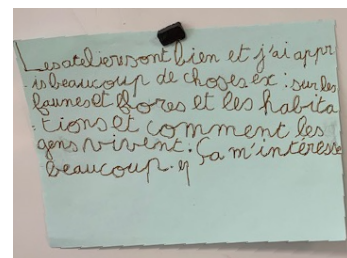 Les ateliers sont bien et j'ai appr
is beaucoup de choses ex : sur les
faunes et flores et les habita
tions et comment les
gens vivent. Ça m'intéresse
beaucoup.